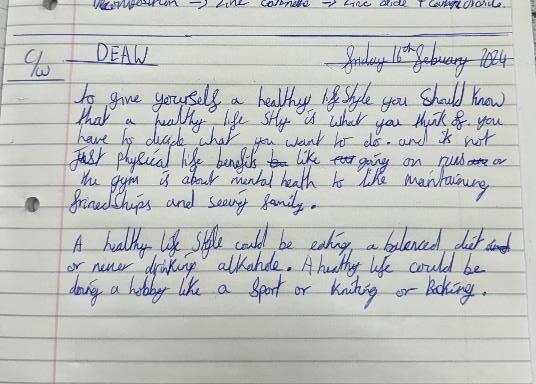 Decomposition → Zinc carbonate → Zinc oxide + carbon dioxide.
C/W DEAW Friday 16th Febuary 2024
to give yourself a healthy lifestyle you should know
that a healthy life Style is what you think of you
have to decide what you want to do. and its not
Just physical life benefits like going on runs or
the gym is about mental heath to like maintaining
frinedships and seeing family.
A healthy life Style could be eating, a balenced diet
or never drinking alkahole. A healthy life could be
doing a hobbey like a Sport or kniting or Baking.